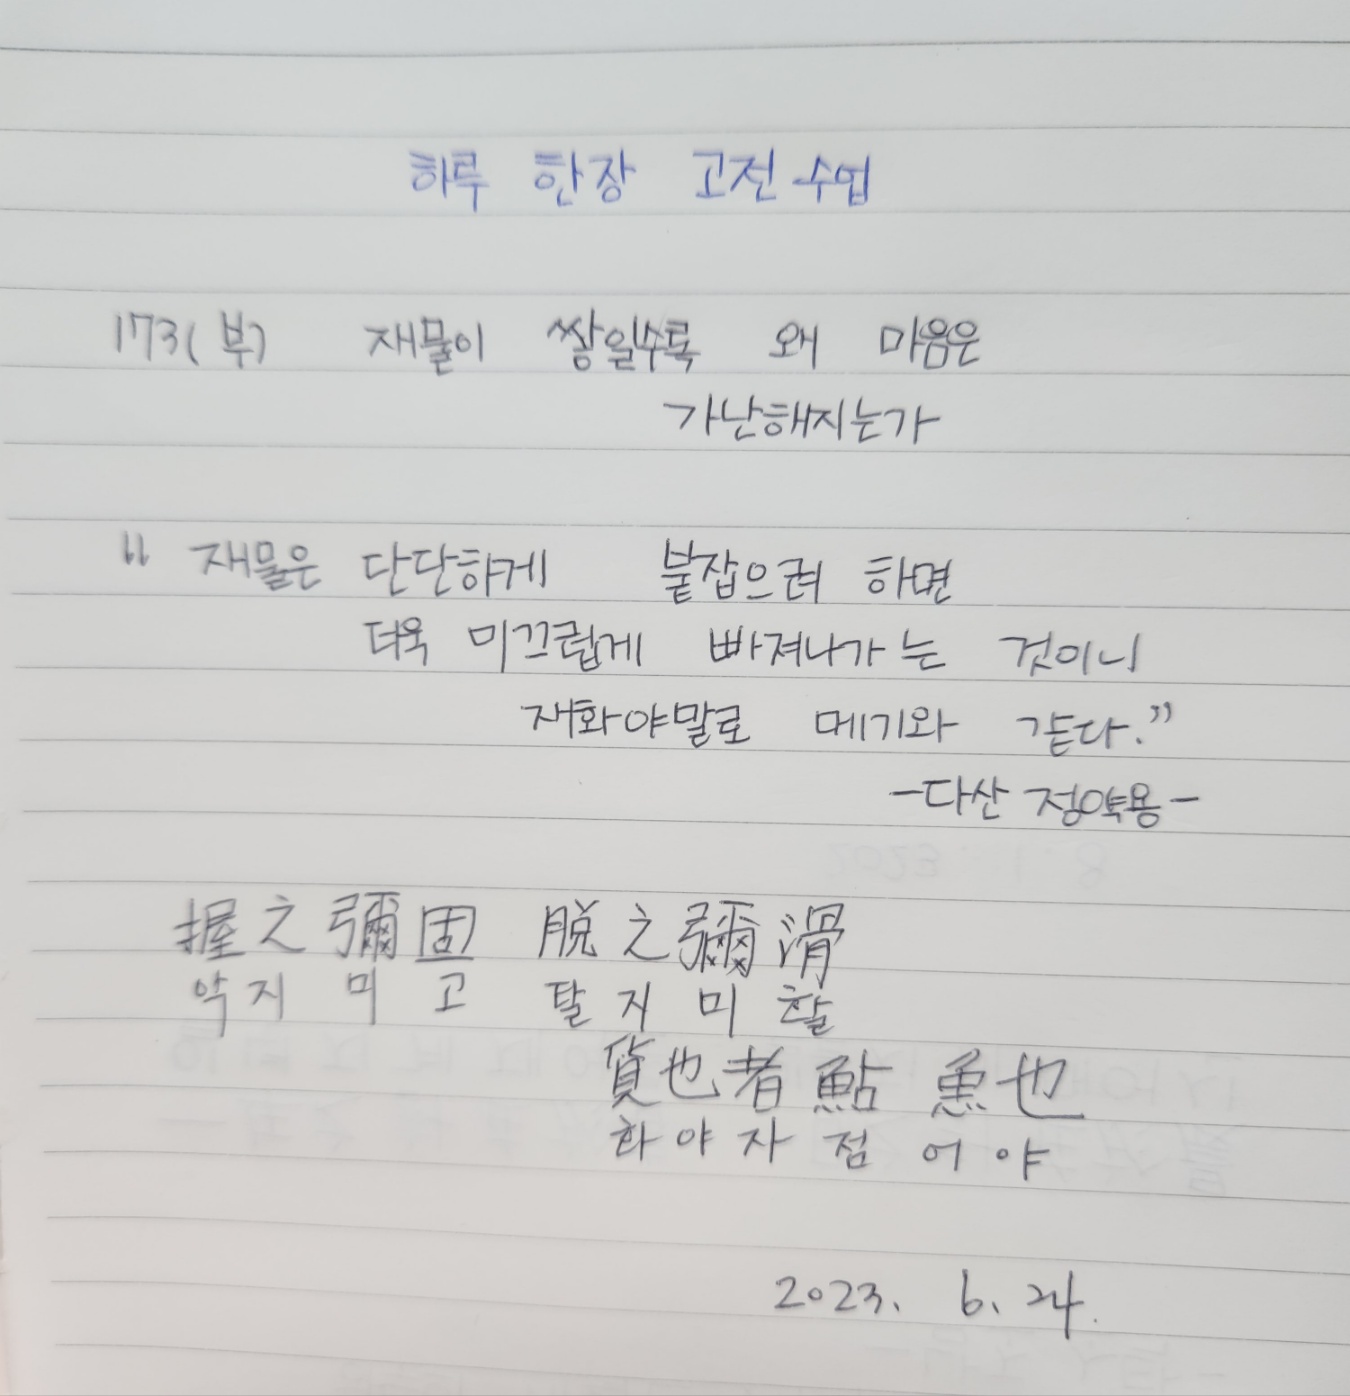 하루 한장 고전수업
173(부) 재물이 쌓일수록 왜 마음은
가난해지는가
“ 재물은 단단하게 붙잡으려 하면
더욱 미끄럽게 빠져나가는 것이니
재화야말로 메기와 같다.”
-다산 정약용-
握之彌固 脫之彌滑
악지미고 탈지미활
貨也者鮎魚也
화야자점어야
2023. 6. 24.